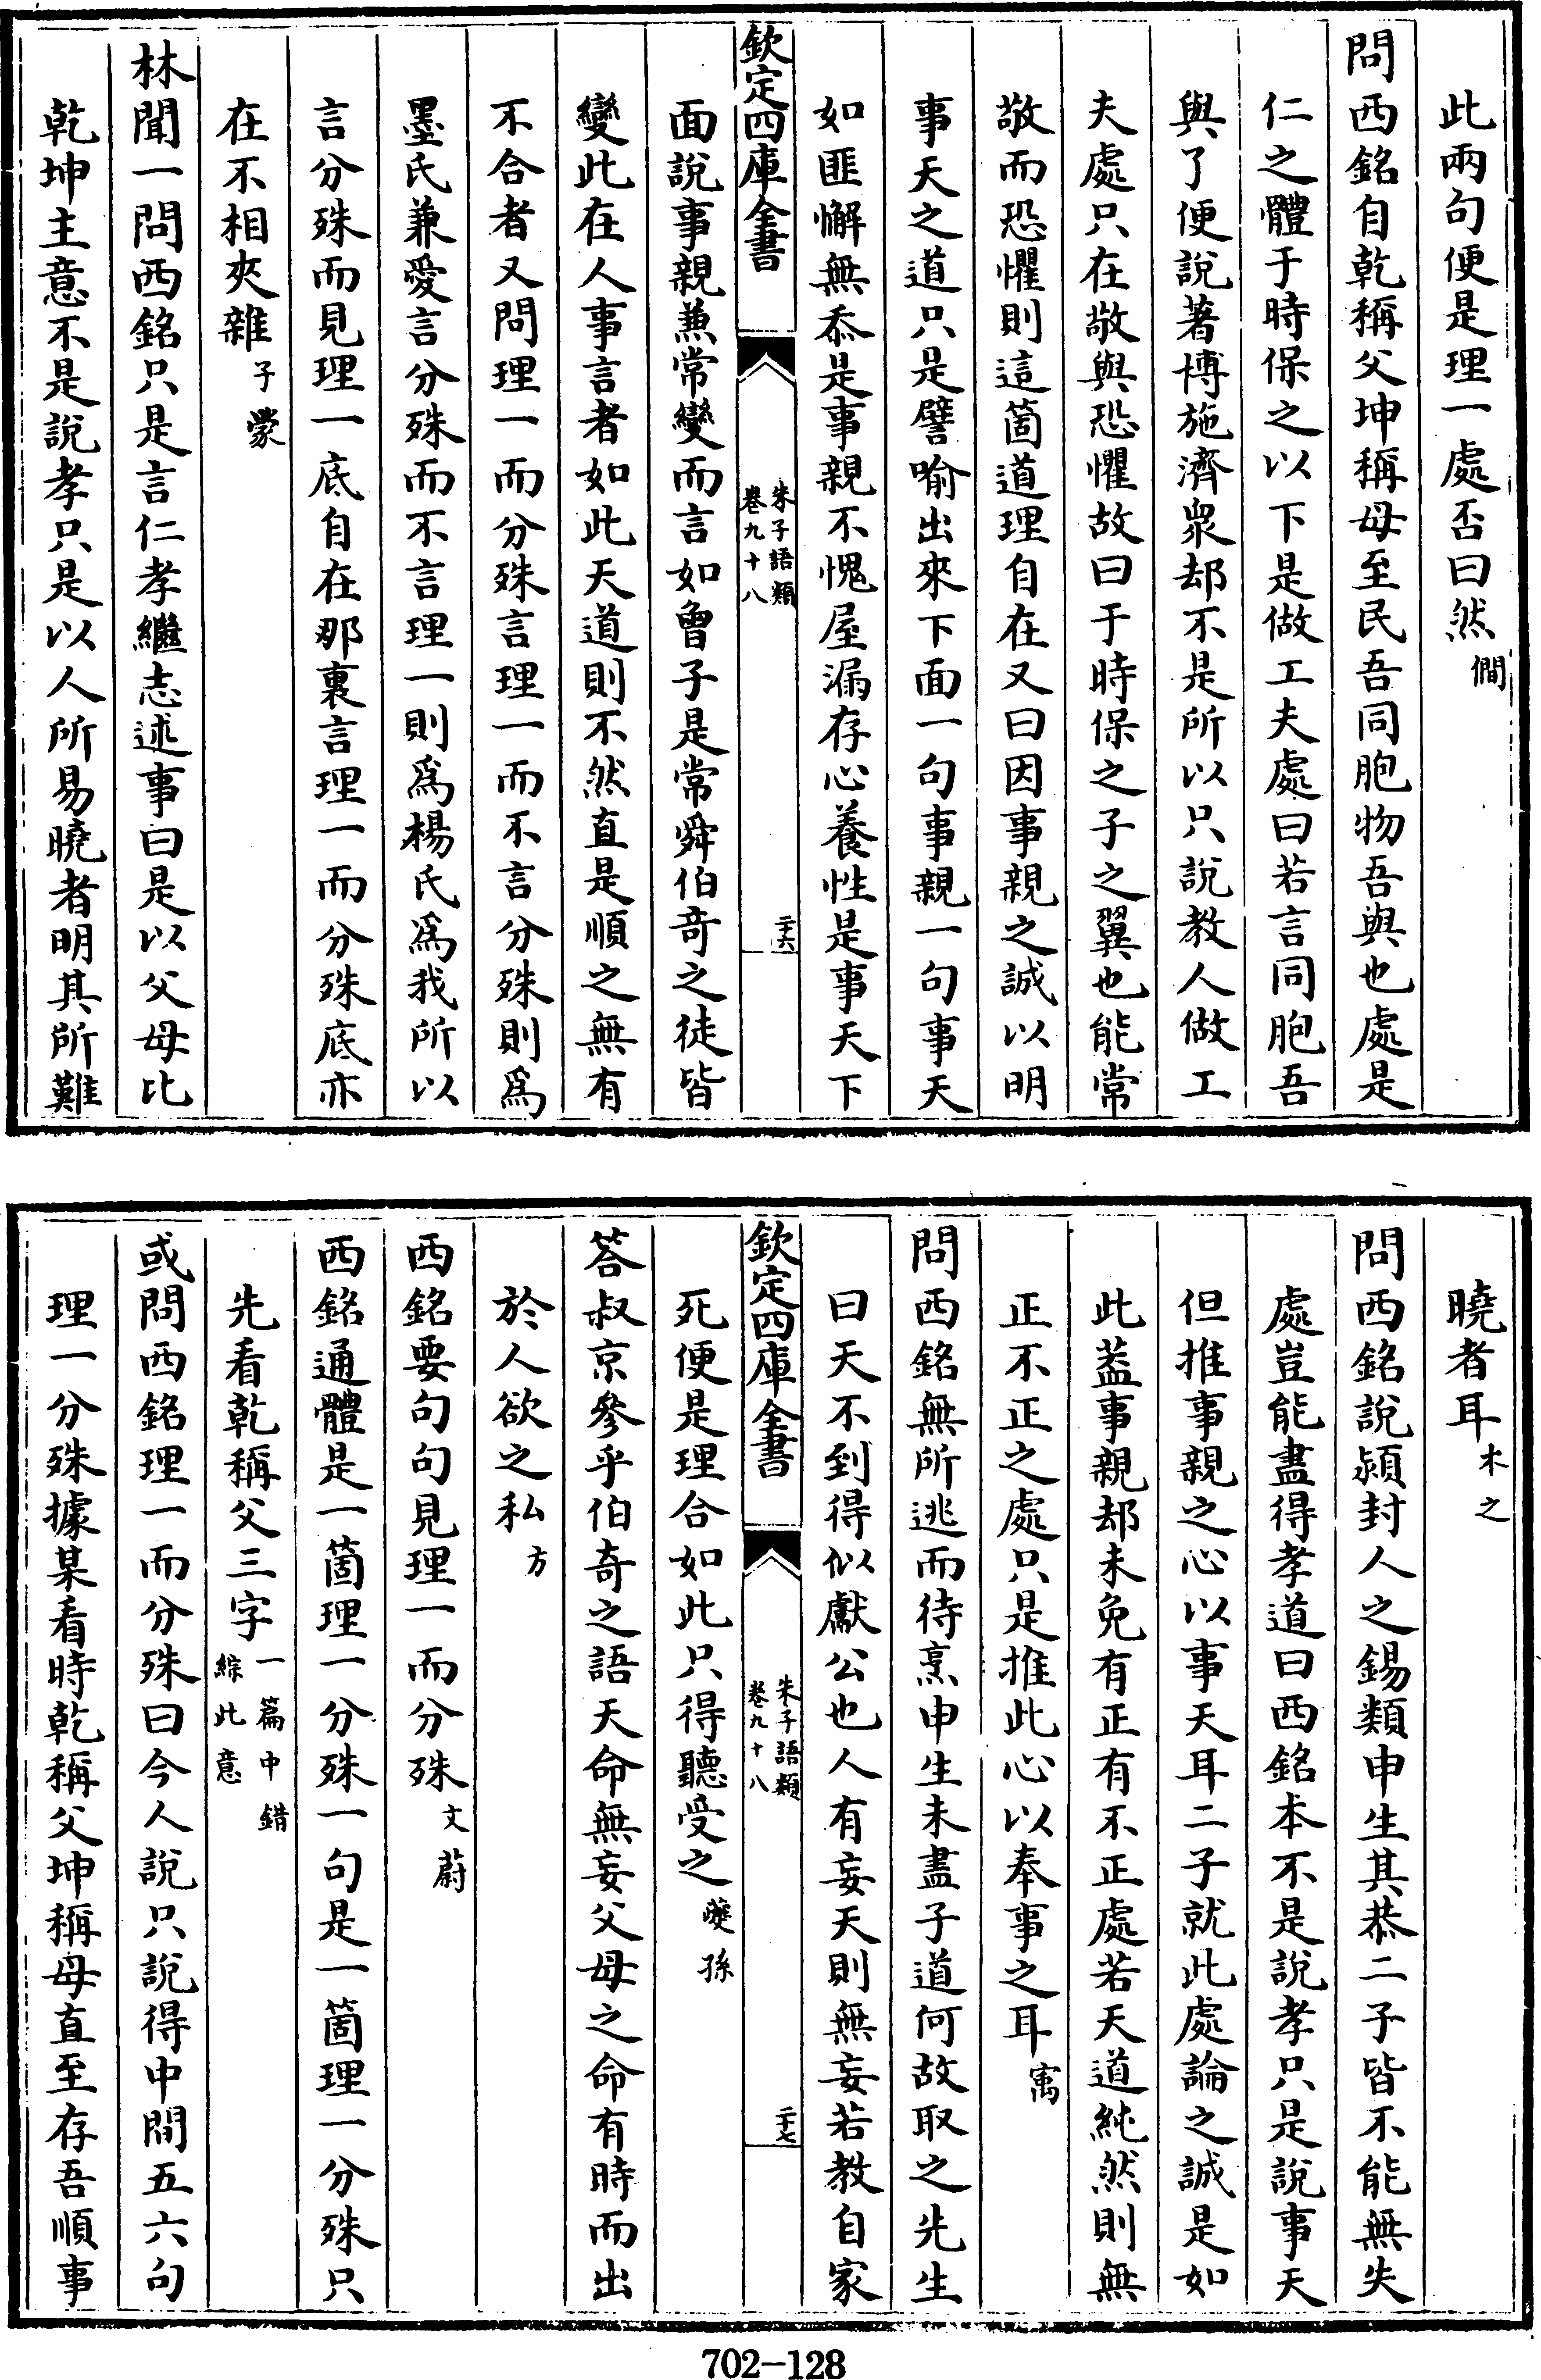 此兩句便是理一處否曰然僩
問西銘自乾稱父坤稱母至民吾同胞物吾與也處是
仁之體于時保之以下是做工夫處曰若言同胞吾
與了便說著博施濟衆却不是所以只說教人做工
夫處只在敬與恐懼故曰于時保之子之翼也能常
敬而恐懼則這箇道理自在又曰因事親之誠以明
事天之道只是譬喻出來下面一句事親一句事天
如匪懈無忝是事親不愧屋漏存心養性是事天下
欽定四庫全書
朱子語類
卷九十八
二十六
面說事親兼常變而言如曾子是常舜伯奇之徒皆
變此在人事言者如此天道則不然直是順之無有
不合者又問理一而分殊言理一而不言分殊則爲
墨氏兼愛言分殊而不言理一則爲楊氏爲我所以
言分殊而見理一底自在那裏言理一而分殊底亦
在不相夾雜子蒙
林聞一問西銘只是言仁孝繼志述事曰是以父母比
乾坤主意不是說孝只是以人所易曉者明其所難
曉者耳木之
問西銘說潁封人之錫類申生其恭二子皆不能無失
處豈能盡得孝道曰西銘本不是說孝只是說事天
但推事親之心以事天耳二子就此處論之誠是如
此葢事親却未免有正有不正處若天道純然則無
正不正之處只是推此心以奉事之耳㝢
問西銘無所逃而待烹申生未盡子道何故取之先生
曰天不到得似獻公也人有妄天則無妄若教自家
欽定四庫全書
朱子語類
卷九十八
二十七
死便是理合如此只得聽受之夔孫
答叔京參乎伯奇之語天命無妄父母之命有時而出
於人欲之私方
西銘要句句見理一而分殊文蔚
西銘通體是一箇理一分殊一句是一箇理一分殊只
先看乾稱父三字一篇中錯綜此意
或問西銘理一而分殊曰今人說只說得中間五六句
理一分殊據某看時乾稱父坤稱母直至存吾順事
702-128